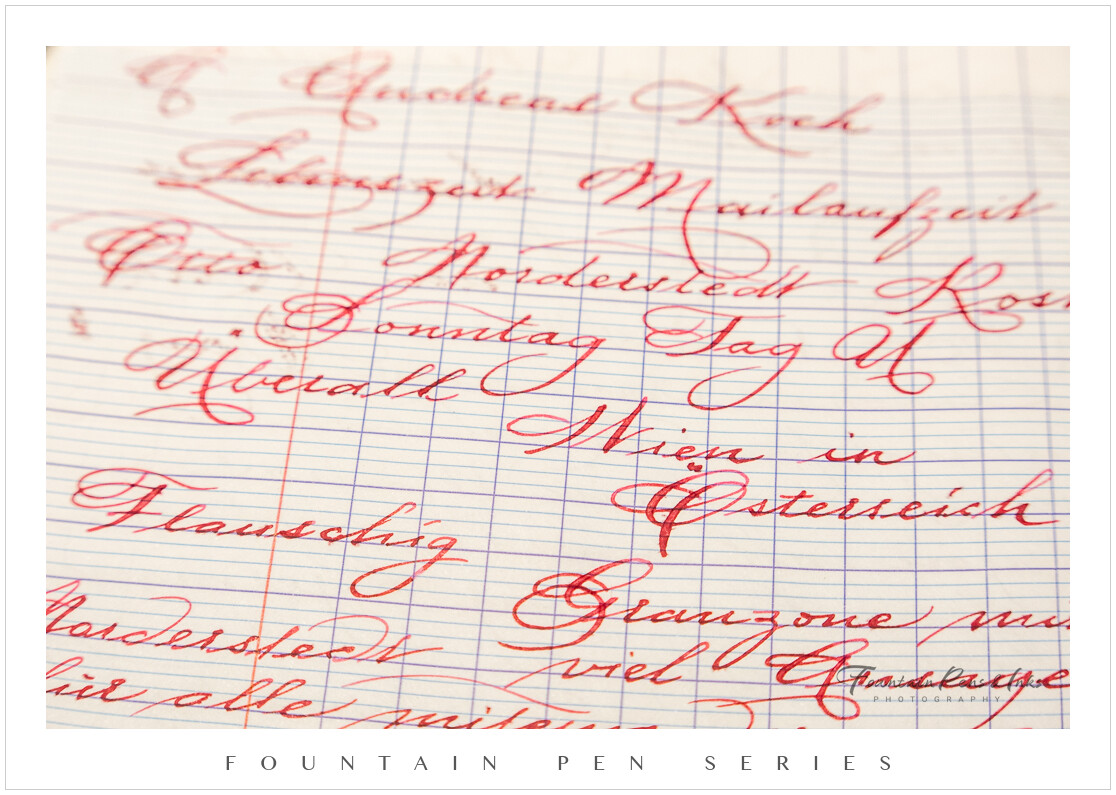 A Andreas Koch
Lebenszeit Mailaufzeit
Otto Norderstedt
Sonntag Tag U
Überall
Wien in
Österreich
Flauschig
Granzone
Norderstedt viel
für alle
Fountain Pens & Inks
PHOTOGRAPHY
FOUNTAIN PEN SERIES